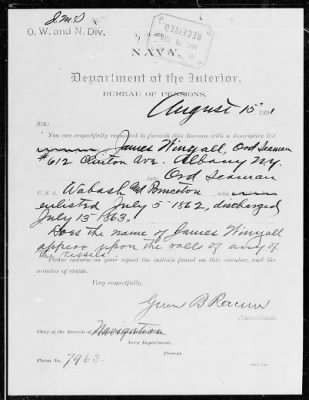 J.M.S
O. W. and N. Div.
RECEIVED
NAVY.
Department of the Interior.
BUREAU OF PENSIONS,
August 15" 1891
SIR:
You are respectfully requested to furnish this Bureau with a descriptive list
James Wingall, Ord Seaman
#612 Clinton Ave. Albany N.Y.
late Ord Seaman
U. S. S. Wabash and Princeton, who
enlisted July 5" 1862, discharged
July 15" 1863.
Does the name of James Wingall
appear upon the rolls of any of
the vessels
Please indorse on your report the initials found on this circular, and the
number of claim.
Very respectfully,
Green B Raum
Commissioner.
Chief of the Bureau of Navigation
Navy Department,
Present.
Claim No. 7963.